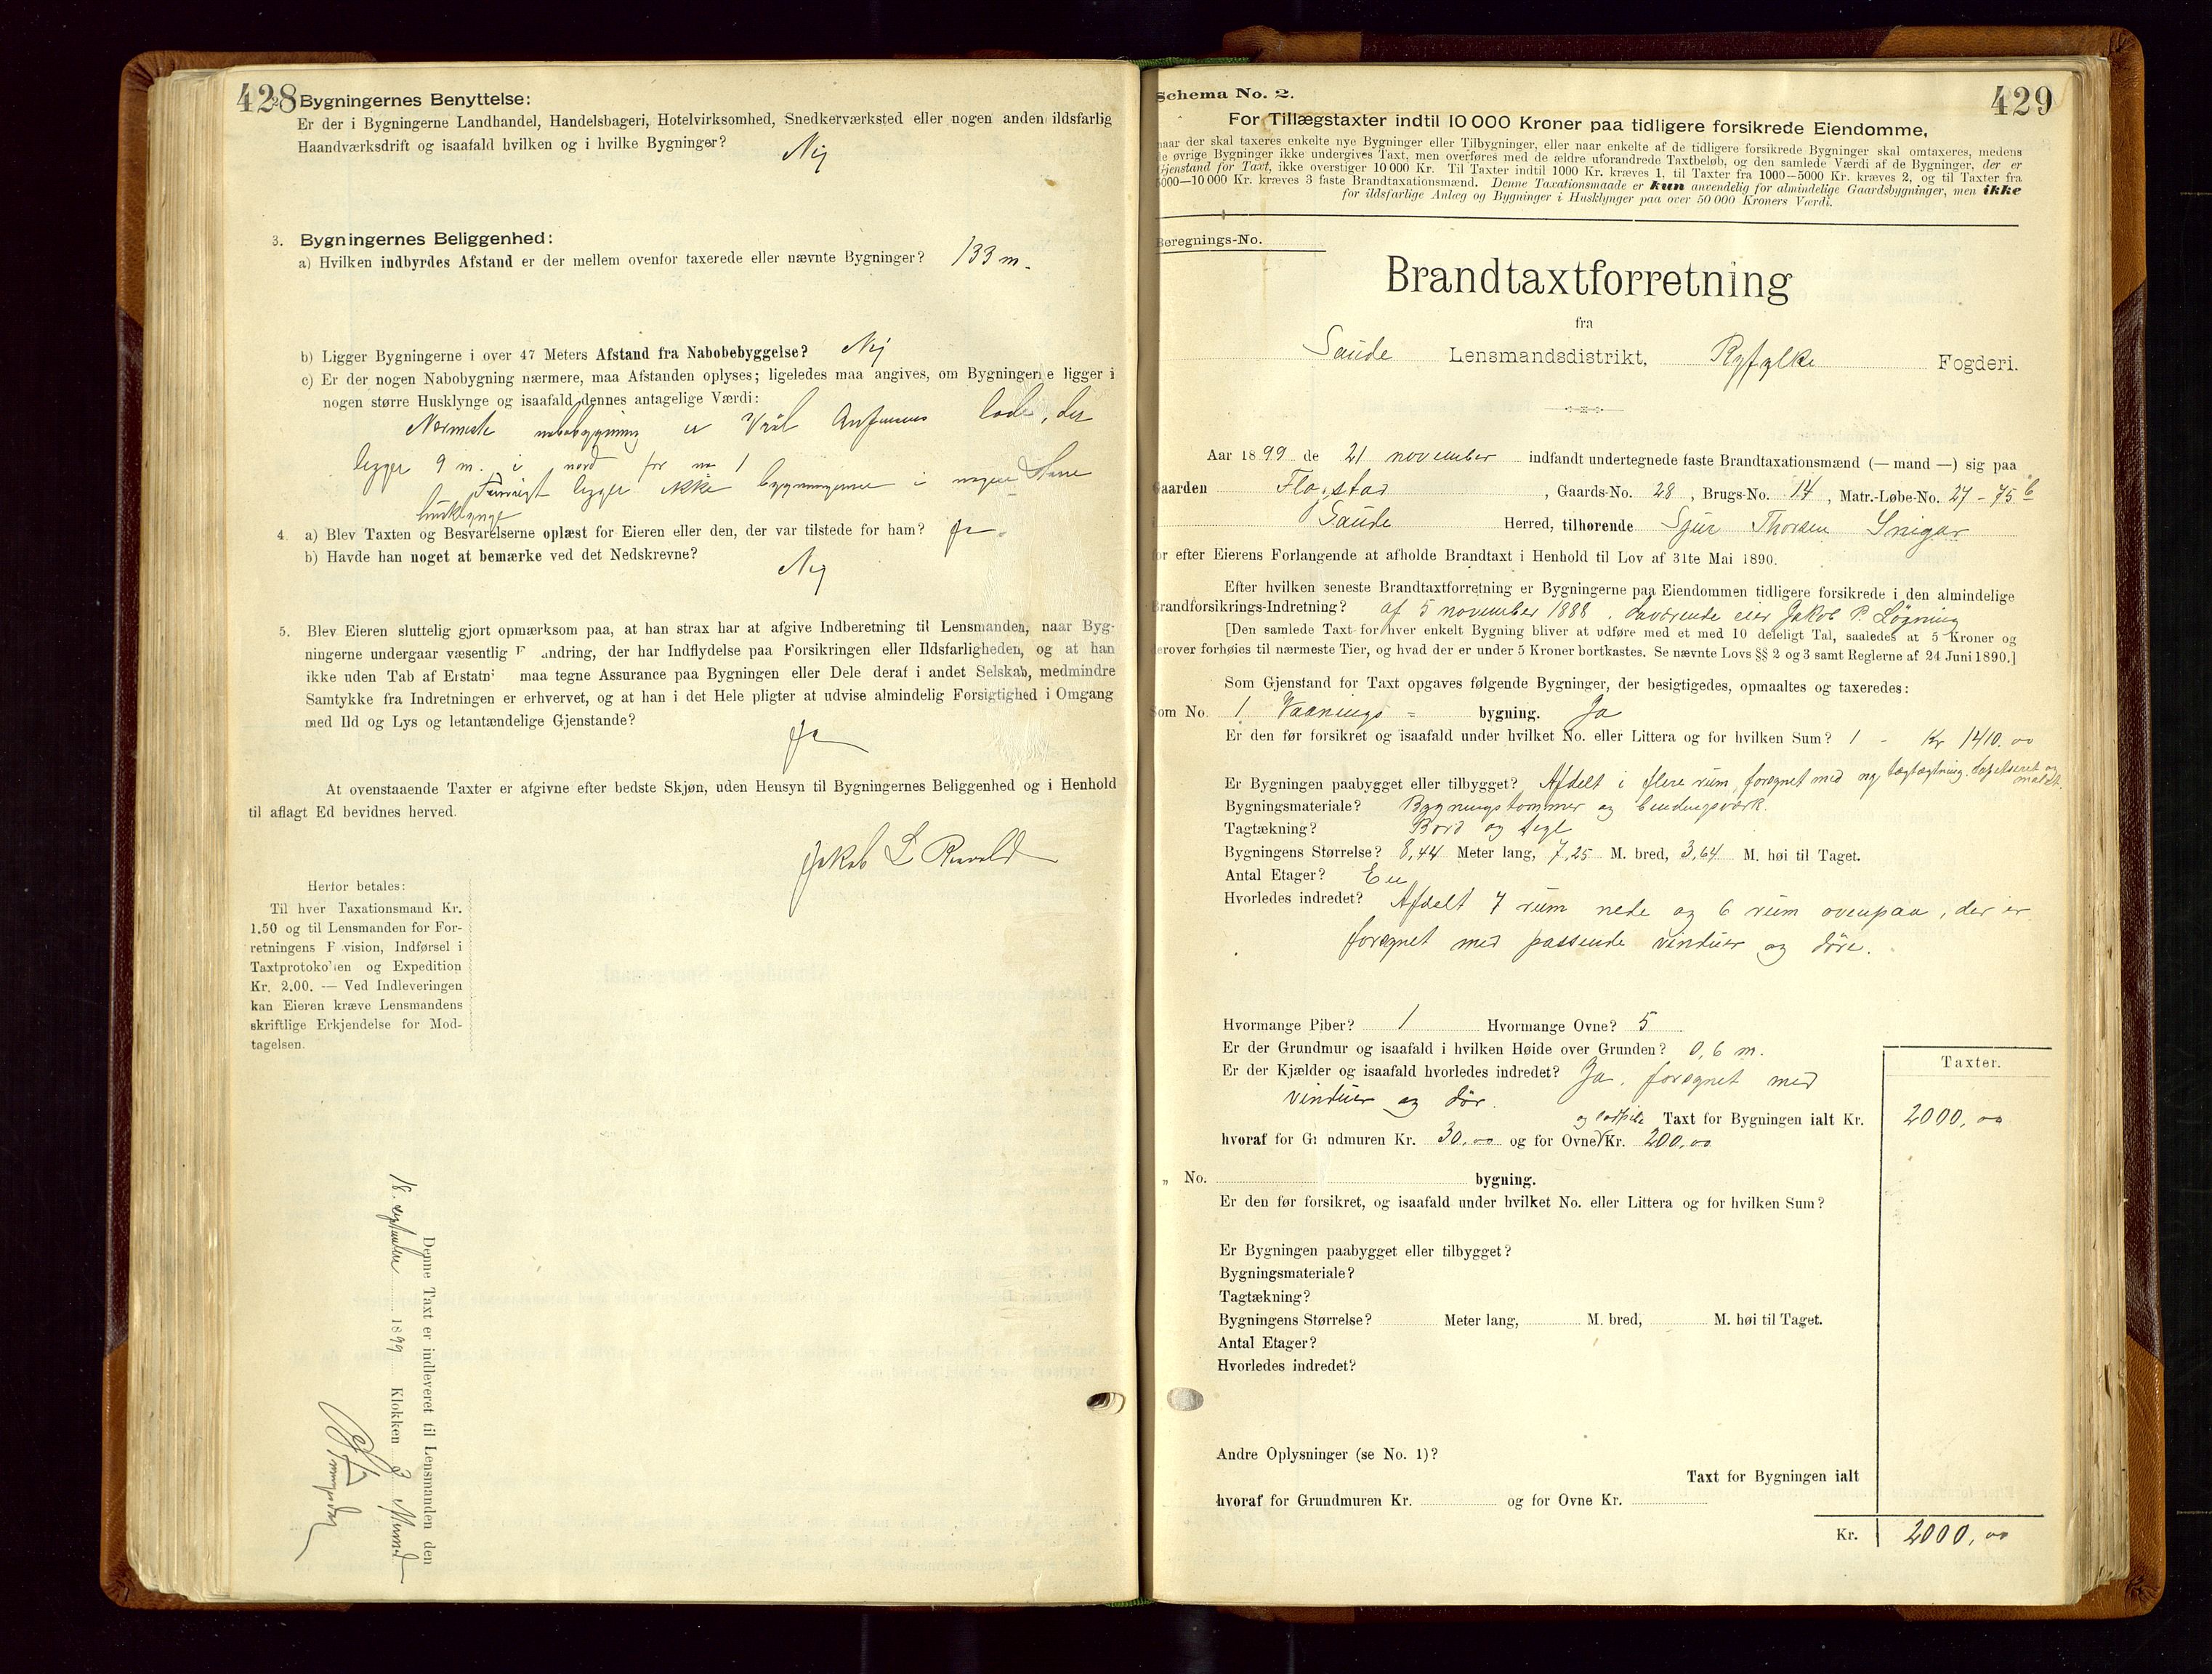 428
2. Bygningernes Benyttelse:
Er der i Bygningerne Landhandel, Handelsbageri, Hotelvirksomhed, Snedkerværksted eller nogen anden ildsfarlig
Haandværksdrift og isaafald hvilken og i hvilke Bygninger? Nei
3. Bygningernes Beliggenhed:
a) Hvilken indbyrdes Afstand er der mellem ovenfor taxerede eller nævnte Bygninger? 133 m.
b) Ligger Bygningerne i over 47 Meters Afstand fra Nabobebyggelse? Nei
c) Er der nogen Nabobygning nærmere, maa Afstanden oplyses; ligeledes maa angives, om Bygningerne ligger i
nogen større Husklynge og isaafald dennes antagelige Værdi:
Nærmeste nabobygning er lade, der
ligger 9 m. i nord for no 1
Forøvrigt ligger ikke bygningerne i nogen større
husklynge
4. a) Blev Taxten og Besvarelserne oplæst for Eieren eller den, der var tilstede for ham? Ja.
b) Havde han noget at bemærke ved det Nedskrevne?
Nei
5. Blev Eieren sluttelig gjort opmærksom paa, at han strax har at afgive Indberetning til Lensmanden, naar Byg-
ningerne undergaar væsentlig F andring, der har Indflydelse paa Forsikringen eller Ildsfarligheden, og at han
ikke uden Tab af Erstatni maa tegne Assurance paa Bygningen eller Dele deraf i andet Selskab, medmindre
Samtykke fra Indretningen er erhvervet, og at han i det Hele pligter at udvise almindelig Forsigtighed i Omgang
med Ild og Lys og letantændelige Gjenstande?
Ja
At ovenstaaende Taxter er afgivne efter bedste Skjøn, uden Hensyn til Bygningernes Beliggenhed og i Henhold
til aflagt Ed bevidnes herved.
Jakob L
Herfor betales:
Til hver Taxationsmand Kr.
1.50 og til Lensmanden for For-
retningens vision, Indførsel i
Taxtprotoko en og Expedition
Kr. 2.00. — Ved Indleveringen
kan Eieren kræve Lensmandens
skriftlige Erkjendelse for Mod-
tagelsen.
Denne Taxt er indleveret til Lensmanden den
18. september 1899 Klokken 3
429
Schema No. 2.
For Tillægstaxter indtil 10 000 Kroner paa tidligere forsikrede Eiendomme,
naar der skal taxeres enkelte nye Bygninger eller Tilbygninger, eller naar enkelte af de tidligere forsikrede Bygninger skal omtaxeres, medens
de øvrige Bygninger ikke undergives Taxt, men overføres med de ældre uforandrede Taxtbeløb, og den samlede Værdi af de Bygninger, der er
Gjenstand for Taxt, ikke overstiger 10 000 Kr. Til Taxter indtil 1000 Kr. kræves 1, til Taxter fra 1000—5000 Kr. kræves 2, og til Taxter fra
5000—10 000 Kr. kræves 3 faste Brandtaxationsmænd. Denne Taxationsmaade er kun anvendelig for almindelige Gaardsbygninger, men ikke
for ildsfarlige Anlæg og Bygninger i Husklynger paa over 50 000 Kroners Værdi.
Beregnings-No.
Brandtaxtforretning
fra
Saude Lensmandsdistrikt, Ryfylke Fogderi.
Aar 1899 de 21 november indfandt undertegnede faste Brandtaxationsmænd (— mand —) sig paa
Gaarden Fløgstad, Gaards-No. 28, Brugs-No. 14, Matr.-Løbe-No. 27 - 75 b
i Saude Herred, tilhørende Sjur Thorsen
for efter Eierens Forlangende at afholde Brandtaxt i Henhold til Lov af 31te Mai 1890.
Efter hvilken seneste Brandtaxtforretning er Bygningerne paa Eiendommen tidligere forsikrede i den almindelige
Brandforsikrings-Indretning? af 5 november 1888. daværende eier Jakob P. Løgning
[Den samlede Taxt for hver enkelt Bygning bliver at udføre med et med 10 deleligt Tal, saaledes at 5 Kroner og
derover forhøies til nærmeste Tier, og hvad der er under 5 Kroner bortkastes. Se nævnte Lovs §§ 2 og 3 samt Reglerne af 24 Juni 1890.]
Som Gjenstand for Taxt opgaves følgende Bygninger, der besigtigedes, opmaaltes og taxeredes:
Som No. 1 Vaanings = bygning. Ja
Er den før forsikret og isaafald under hvilket No. eller Littera og for hvilken Sum? 1 - Kr 1410.00
Er Bygningen paabygget eller tilbygget? Afdelt i flere rum, forsynet med ny tagtægtning. tapetseret og
malet.
Bygningsmateriale? Bygningstømmer og bindingsværk.
Tagtækning? Bord og tegl
Bygningens Størrelse? 8,44 Meter lang, 7,25 M. bred, 3,64 M. høi til Taget.
Antal Etager? En
Hvorledes indredet? Afdelt 7 rum nede og 6 rum ovenpaa, der er
forsynet med passende vinduer og døre.
Hvormange Piber? 1 Hvormange Ovne? 5
Er der Grundmur og isaafald i hvilken Høide over Grunden? 0,6 m.
Er der Kjælder og isaafald hvorledes indredet? Ja, forsynet med
vinduer og dør.
Taxter.
Taxt for Bygningen ialt Kr. 2000,00
hvoraf for Gr ndmuren Kr. 30.00 og for Ovne Kr. 200,00
„ No. bygning.
Er den før forsikret, og isaafald under hvilket No. eller Littera og for hvilken Sum?
Er Bygningen paabygget eller tilbygget?
Bygningsmateriale?
Tagtækning?
Bygningens Størrelse? Meter lang, M. bred, M. høi til Taget.
Antal Etager?
Hvorledes indredet?
Andre Oplysninger (se No. 1)?
Taxt for Bygningen ialt
hvoraf for Grundmuren Kr. og for Ovne Kr.
Kr. 2000,00